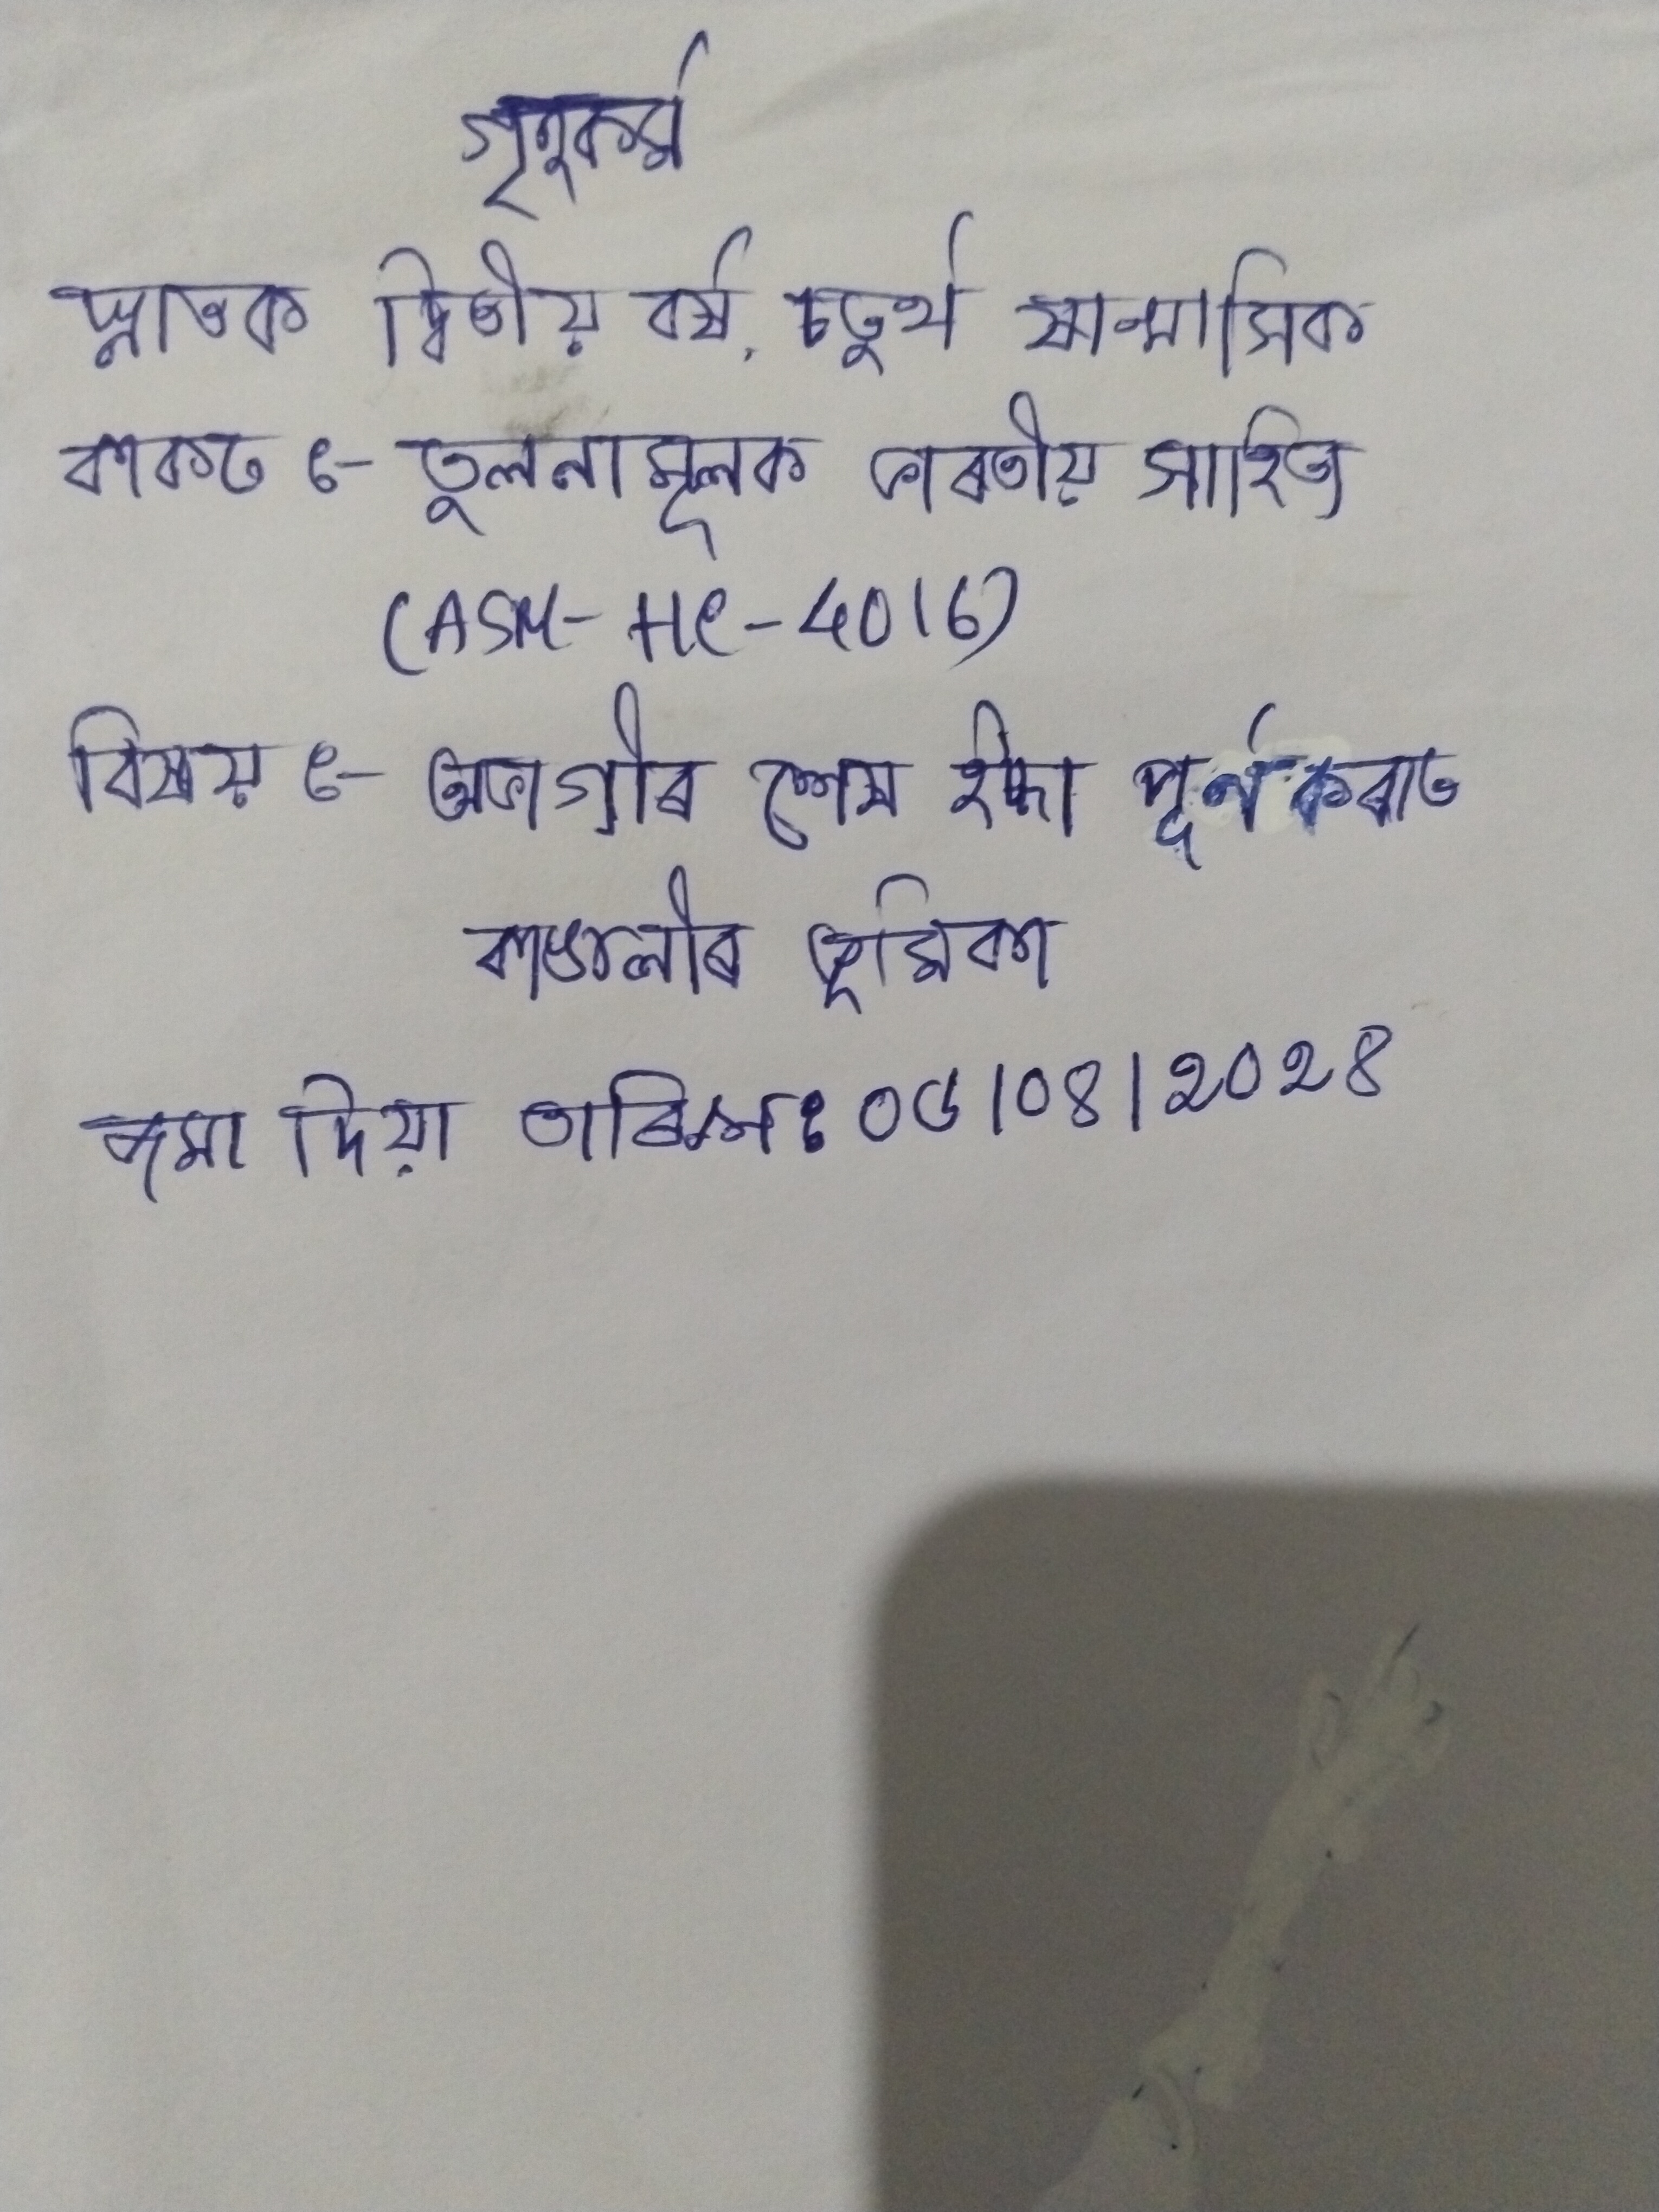 গৃহকৰ্ম
স্নাতক দ্বিতীয় বৰ্ষ, চতুৰ্থ ষান্মাসিক
কাকত ঃ- তুলনামূলক ভাৰতীয় সাহিত্য
(ASM- HC - 4016)
বিষয় ঃ- অভাগীৰ শেষ ইচ্ছা পূৰ্ন কৰাত
কাঙালীৰ ভূমিকা
জমা দিয়া তাৰিখঃ ০৫|০৪|২০২৪